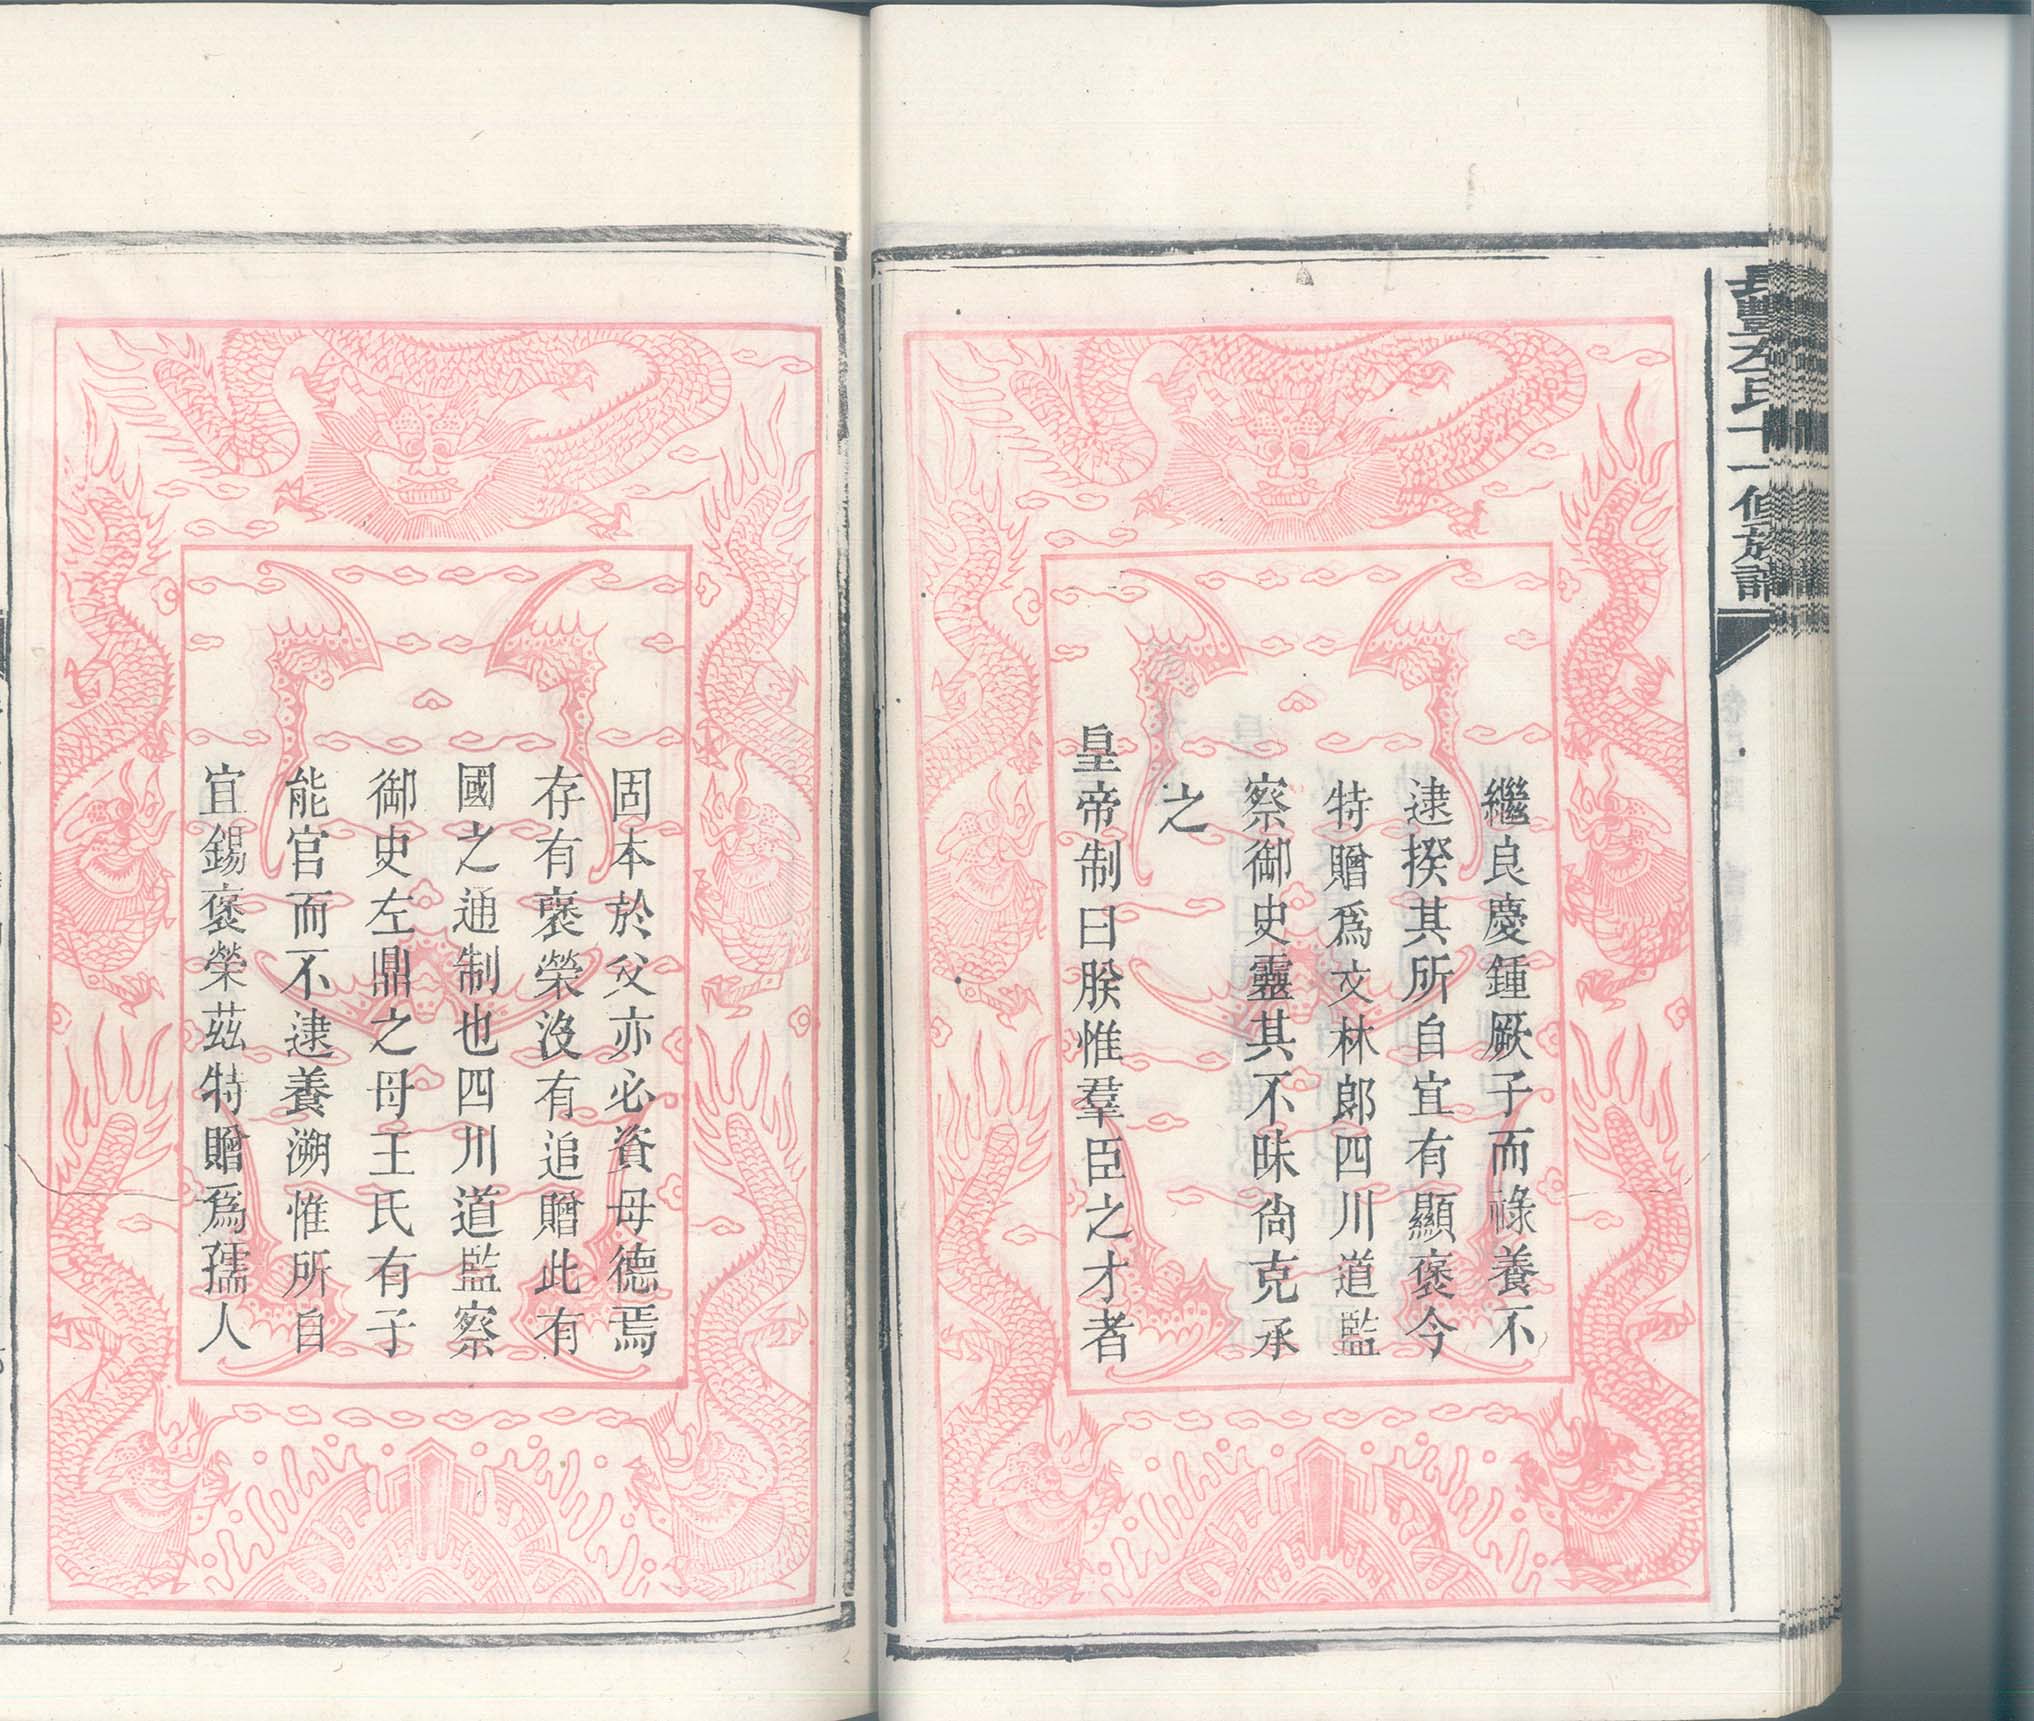 豐左氏十一修族譜
繼良慶鍾厥子而祿養不
逮揆其所自宜有顯褒今
特贈爲文林郎四川道監
察御史靈其不昧尙克承
之
皇帝制曰朕惟羣臣之才者
固本於父亦必資母德焉
存有褒榮沒有追贈此有
國之通制也四川道監察
御史左鼎之母王氏有子
能官而不逮養溯惟所自
宜錫褒榮茲特贈爲孺人